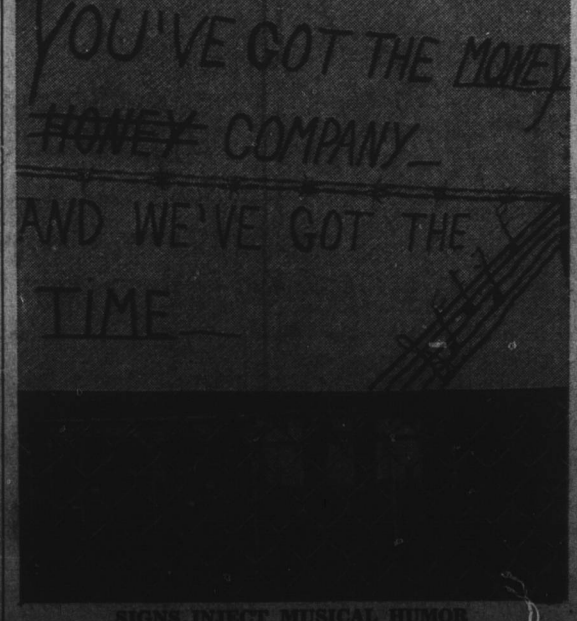 YOU'VE GOT THE MONEY
HONEY COMPANY_
AND WE'VE GOT THE
TIME__
SIGNS INJECT MUSICAL HUMOR